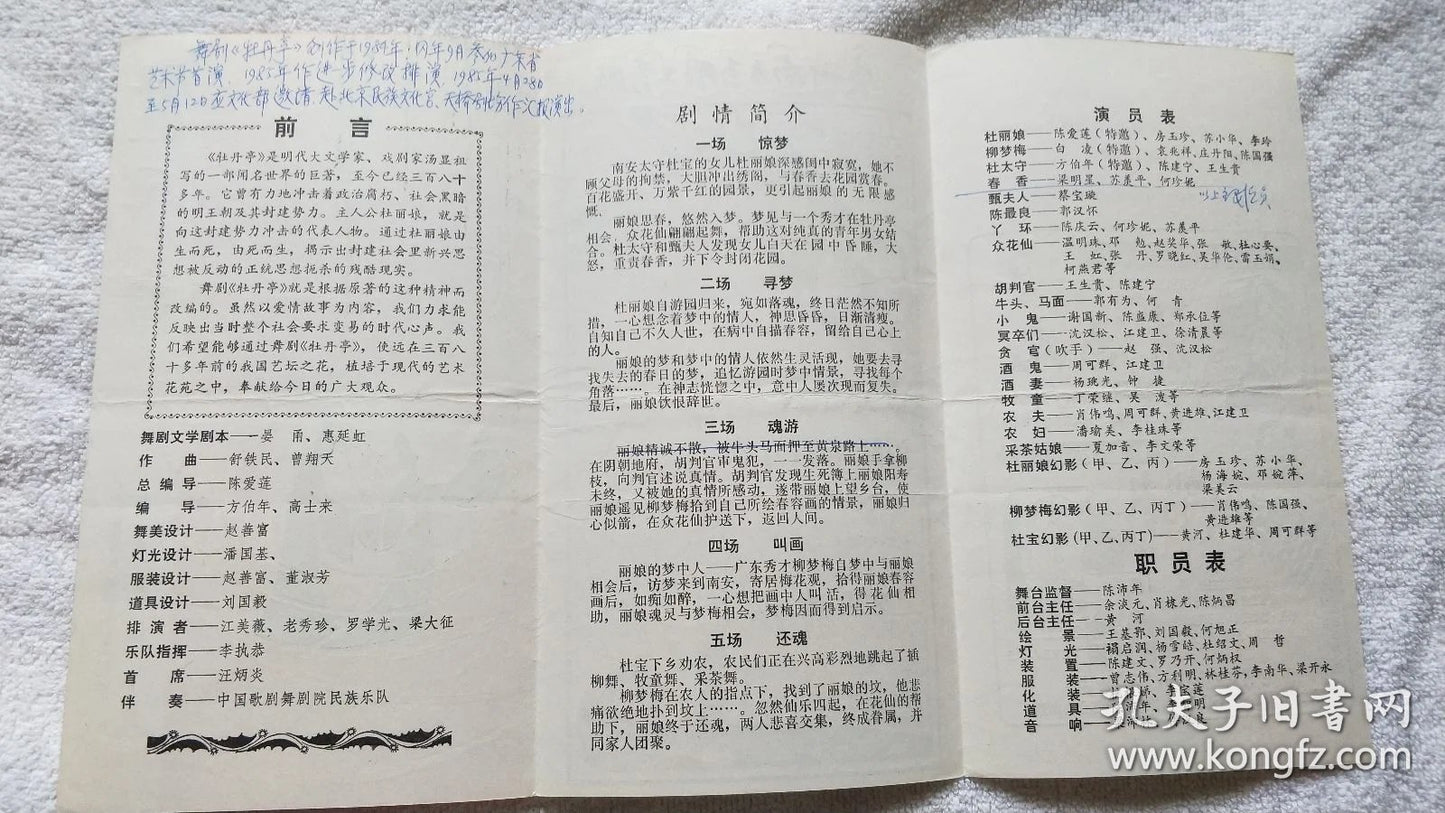 舞剧《牡丹亭》创作于1984年,同年9月参加广东省
艺术节首演、1985年作进步修改排演,1985年4月28日
至5月12日应文化部邀请赴北京民族文化宫、天桥剧场作汇报演出。
前 言
《牡丹亭》是明代大文学家、戏剧家汤显祖
写的一部闻名世界的巨著,至今已经三百八十
多年。它曾有力地冲击着政治腐朽、社会黑暗
的明王朝及其封建势力。主人公杜丽娘,就是
向这封建势力冲击的代表人物。通过杜丽娘由
生而死,由死而生,揭示出封建社会里新兴思
想被反动的正统思想扼杀的残酷现实。
舞剧《牡丹亭》就是根据原著的这种精神而
改编的。虽然以爱情故事为内容,我们力求能
反映出当时整个社会要求变易的时代心声。我
们希望能够通过舞剧《牡丹亭》,使远在三百八
十多年前的我国艺坛之花,植培于现代的艺术
花苑之中,奉献给今日的广大观众。
舞剧文学剧本——晏 甬、惠延虹
作 曲——舒铁民、曾翔天
总 编 导——陈爱莲
编 导——方伯年、高士来
舞美设计——赵善富
灯光设计——潘国基、
服装设计——赵善富、董淑芳
道具设计——刘国毅
排 演 者——江美薇、老秀珍、罗学光、梁大征
乐队指挥——李执恭
首 席——汪炳炎
伴 奏——中国歌剧舞剧院民族乐队
剧 情 简 介
一场 惊梦
南安太守杜宝的女儿杜丽娘深感闺中寂寞,她不
顾父母的拘禁,大胆冲出绣阁,与春香去花园赏春。
百花盛开、万紫千红的园景,更引起丽娘的无限感
慨。
丽娘思春,悠然入梦。梦见与一个秀才在牡丹亭
相会。众花仙翩翩起舞,帮助这对纯真的青年男女结
合。杜太守和甄夫人发现女儿白天在园中昏睡,大
怒,重责春香,并下令封闭花园。
二场 寻梦
杜丽娘自游园归来,宛如落魂,终日茫然不知所
措,一心想念着梦中的情人,神思昏昏,日渐清瘦。
自知自己不久人世,在病中自描春容,留给自己心上
的人。
丽娘的梦和梦中的情人依然生灵活现,她要去寻
找失去的春日的梦,追忆游园时梦中情景,寻找每个
角落……。在神志恍惚之中,意中人屡次现而复失。
最后,丽娘饮恨辞世。
三场 魂游
丽娘精诚不散,被牛头马面押至黄泉路上……。
在阴朝地府,胡判官审鬼犯,一一发落。丽娘手拿柳
枝,向判官述说真情。胡判官发现生死簿上丽娘阳寿
未终,又被她的真情所感动,遂带丽娘上望乡台,使
丽娘遥见柳梦梅拾到自己所绘春容画的情景,丽娘归
心似箭,在众花仙护送下,返回人间。
四场 叫画
丽娘的梦中人——广东秀才柳梦梅自梦中与丽娘
相会后,访梦来到南安,寄居梅花观,拾得丽娘春容
画后,如痴如醉,一心想把画中人叫活,得花仙相
助,丽娘魂灵与梦梅相会,梦梅因而得到启示。
五场 还魂
杜宝下乡劝农,农民们正在兴高彩烈地跳起了插
柳舞、牧童舞、采茶舞。
柳梦梅在农人的指点下,找到了丽娘的坟,他悲
痛欲绝地扑到坟上……。忽然仙乐四起,在花仙的帮
助下,丽娘终于还魂,两人悲喜交集,终成眷属,并
同家人团聚。
演 员 表
杜丽娘——陈爱莲(特邀)、房玉珍、苏小华、李玲
柳梦梅——白 凌(特邀)、袁兆祥、庄丹阳、陈国强
杜太守——方伯年(特邀)、陈建宁、王生贵
春 香——梁明星、苏羡平、何珍妮
甄夫人——蔡宝璇 以上主要演员
陈最良——郭汉怀
丫 环——陈庆云、何珍妮、苏羡平
众花仙——温明珠、邓 勉、赵奖华、张 敏、杜心要、
王 虹、张 丹、罗晓红、吴华伦、雷玉娟、
柯燕君等
胡判官——王生贵、陈建宁
牛头、马面——郭有为、何 青
小 鬼——谢国新、陈益康、郑承位等
冥卒们——沈汉松、江建卫、徐清晨等
贪 官(吹手)——赵 强、沈汉松
酒 鬼——周可群、江建卫
酒 妻——杨琬光、钟 捷
牧 童——丁荣继、吴 波等
农 夫——肖伟鸣、周可群、黄进雄、江建卫
农 妇——潘瑜美、李桂珠等
采茶姑娘——夏加音、李文荣等
杜丽娘幻影(甲、乙、丙)——房玉珍、苏小华、
杨海婉、邓婉萍、
梁美云
柳梦梅幻影(甲、乙、丙丁)——肖伟鸣、陈国强、
黄进雄等
杜宝幻影(甲、乙、丙丁)——黄河、杜建华、周可群等
职 员 表
舞台监督——陈沛年
前台主任——余淡元、肖栋光、陈炳昌
后台主任——黄 河
绘 景——王基鄂、刘国毅、何旭正
灯 光——禤启润、杨雪皓、杜绍文、周 哲
装 置——陈建文、罗乃开、何炳权
服 装——曾志伟、方利明、林桂芬、李南华、梁开永
化 装
道 具
音 响
孔夫子旧书网
www.kongfz.com